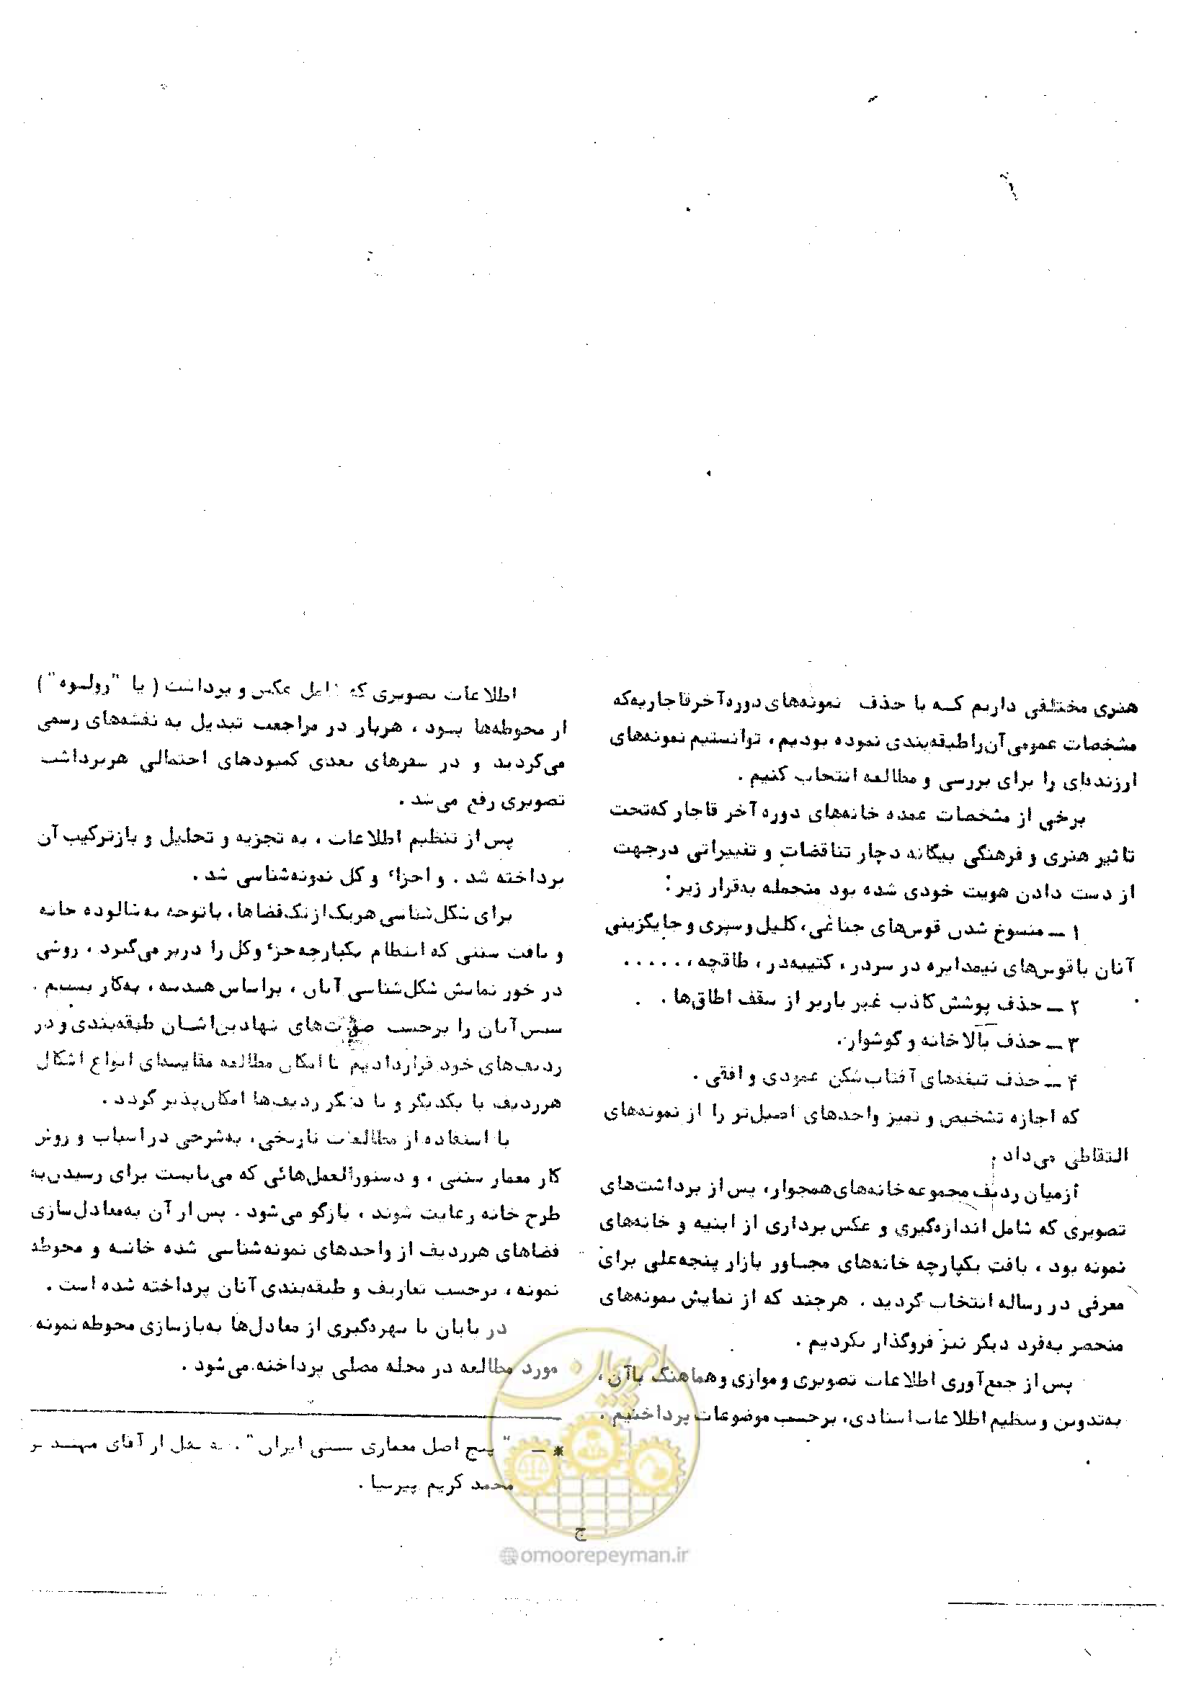 هنری مختلفی داریم که با حذف نمونه‌های دوره آخر قاجاریه که
مشخصات عمومی آن را طبقه‌بندی نموده بودیم، توانستیم نمونه‌های
ارزنده‌ای را برای بررسی و مطالعه انتخاب کنیم .
برخی از مشخصات عمده خانه‌های دوره آخر قاجار که تحت
تاثیر هنری و فرهنگی بیگانه دچار تناقضات و تغییراتی در جهت
از دست دادن هویت خودی شده بود منجمله به‌قرار زیر :
۱ ــ منسوخ شدن قوس‌های جناغی، کلیل و سپری و جایگزینی
آنان با قوس‌های نیمدایره در سردر ، کتیبه‌در ، طاقچه ، . . . . .
۲ ــ حذف پوشش کاذب غیر باربر از سقف اطاق‌ها .
۳ ــ حذف بالاخانه و گوشوار .
۴ ــ حذف تیغه‌های آفتاب شکن عمودی و افقی .
که اجازه تشخیص و تمیز واحدهای اصیل‌تر را از نمونه‌های
التقاطی می‌داد .
از میان ردیف مجموعه خانه‌های همجوار ، پس از برداشت‌های
تصویری که شامل اندازه‌گیری و عکس برداری از ابنیه و خانه‌های
نمونه بود ، بافت یکپارچه خانه‌های مجاور بازار پنجه‌علی برای
معرفی در رساله انتخاب گردید . هرچند که از نمایش نمونه‌های
منحصر به‌فرد دیگر نیز فروگذار نکردیم .
پس از جمع‌آوری اطلاعات تصویری و موازی و هماهنگ با آن ،
به‌تدوین و تنظیم اطلاعات اسنادی، برحسب موضوعات پرداختیم .
اطلاعات تصویری که شامل عکس و برداشت ( یا "رولوه" )
از محوطه‌ها بود ، هربار در مراجعت تبدیل به نقشه‌های رسمی
می‌گردید و در سفرهای بعدی کمبودهای احتمالی هر برداشت
تصویری رفع می‌شد .
پس از تنظیم اطلاعات ، به تجزیه و تحلیل و بازترکیب آن
پرداخته شد . و اجزاء و کل نمونه‌شناسی شد .
برای شکل‌شناسی هریک از تک‌فضاها، با توجه به شالوده خانه
و بافت سنتی که انتظام یکپارچه جزء و کل را دربر می‌گیرد ، روشی
در خور نمایش شکل‌شناسی آنان ، براساس هندسه ، به‌کار بستیم .
سپس آنان را برحسب صورت‌های نهادین‌اشان طبقه‌بندی و در
ردیف‌های خود قرار دادیم تا امکان مطالعه مقایسه‌ای انواع اشکال
هر ردیف با یکدیگر و با دیگر ردیف‌ها امکان‌پذیر گردد .
با استفاده از مطالعات تاریخی، به‌شرحی در اسباب و روش
کار معمار سنتی ، و دستورالعمل‌هائی که می‌بایست برای رسیدن به
طرح خانه رعایت شوند ، بازگو می‌شود . پس از آن به‌معادل‌سازی
فضاهای هر ردیف از واحدهای نمونه‌شناسی شده خانه و محوطه
نمونه ، برحسب تعاریف و طبقه‌بندی آنان پرداخته شده است .
در پایان با بهره‌گیری از معادل‌ها به‌بازسازی محوطه نمونه
مورد مطالعه در محله مصلی پرداخته می‌شود .
* ــ " پنج اصل معماری سنتی ایران" . به نقل از آقای مهندس
محمد کریم پیرنیا .
ج
امور پیمان
@omoorepeyman.ir